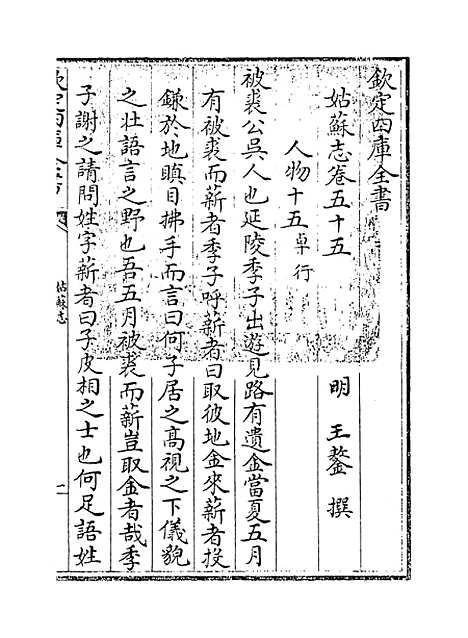 欽定四庫全書
姑蘇志卷五十五
明 王鏊 撰
人物十五卓行
被裘公吳人也延陵季子出遊見路有遺金當夏五月
有被裘而薪者季子呼薪者曰取彼地金來薪者投
鎌於地瞋目拂手而言曰何子居之髙視之下儀貌
之壯語言之野也吾五月被裘而薪豈取金者哉季
子謝之請問姓字薪者曰子皮相之士也何足語姓
欽定四庫全書
姑蘇志
一